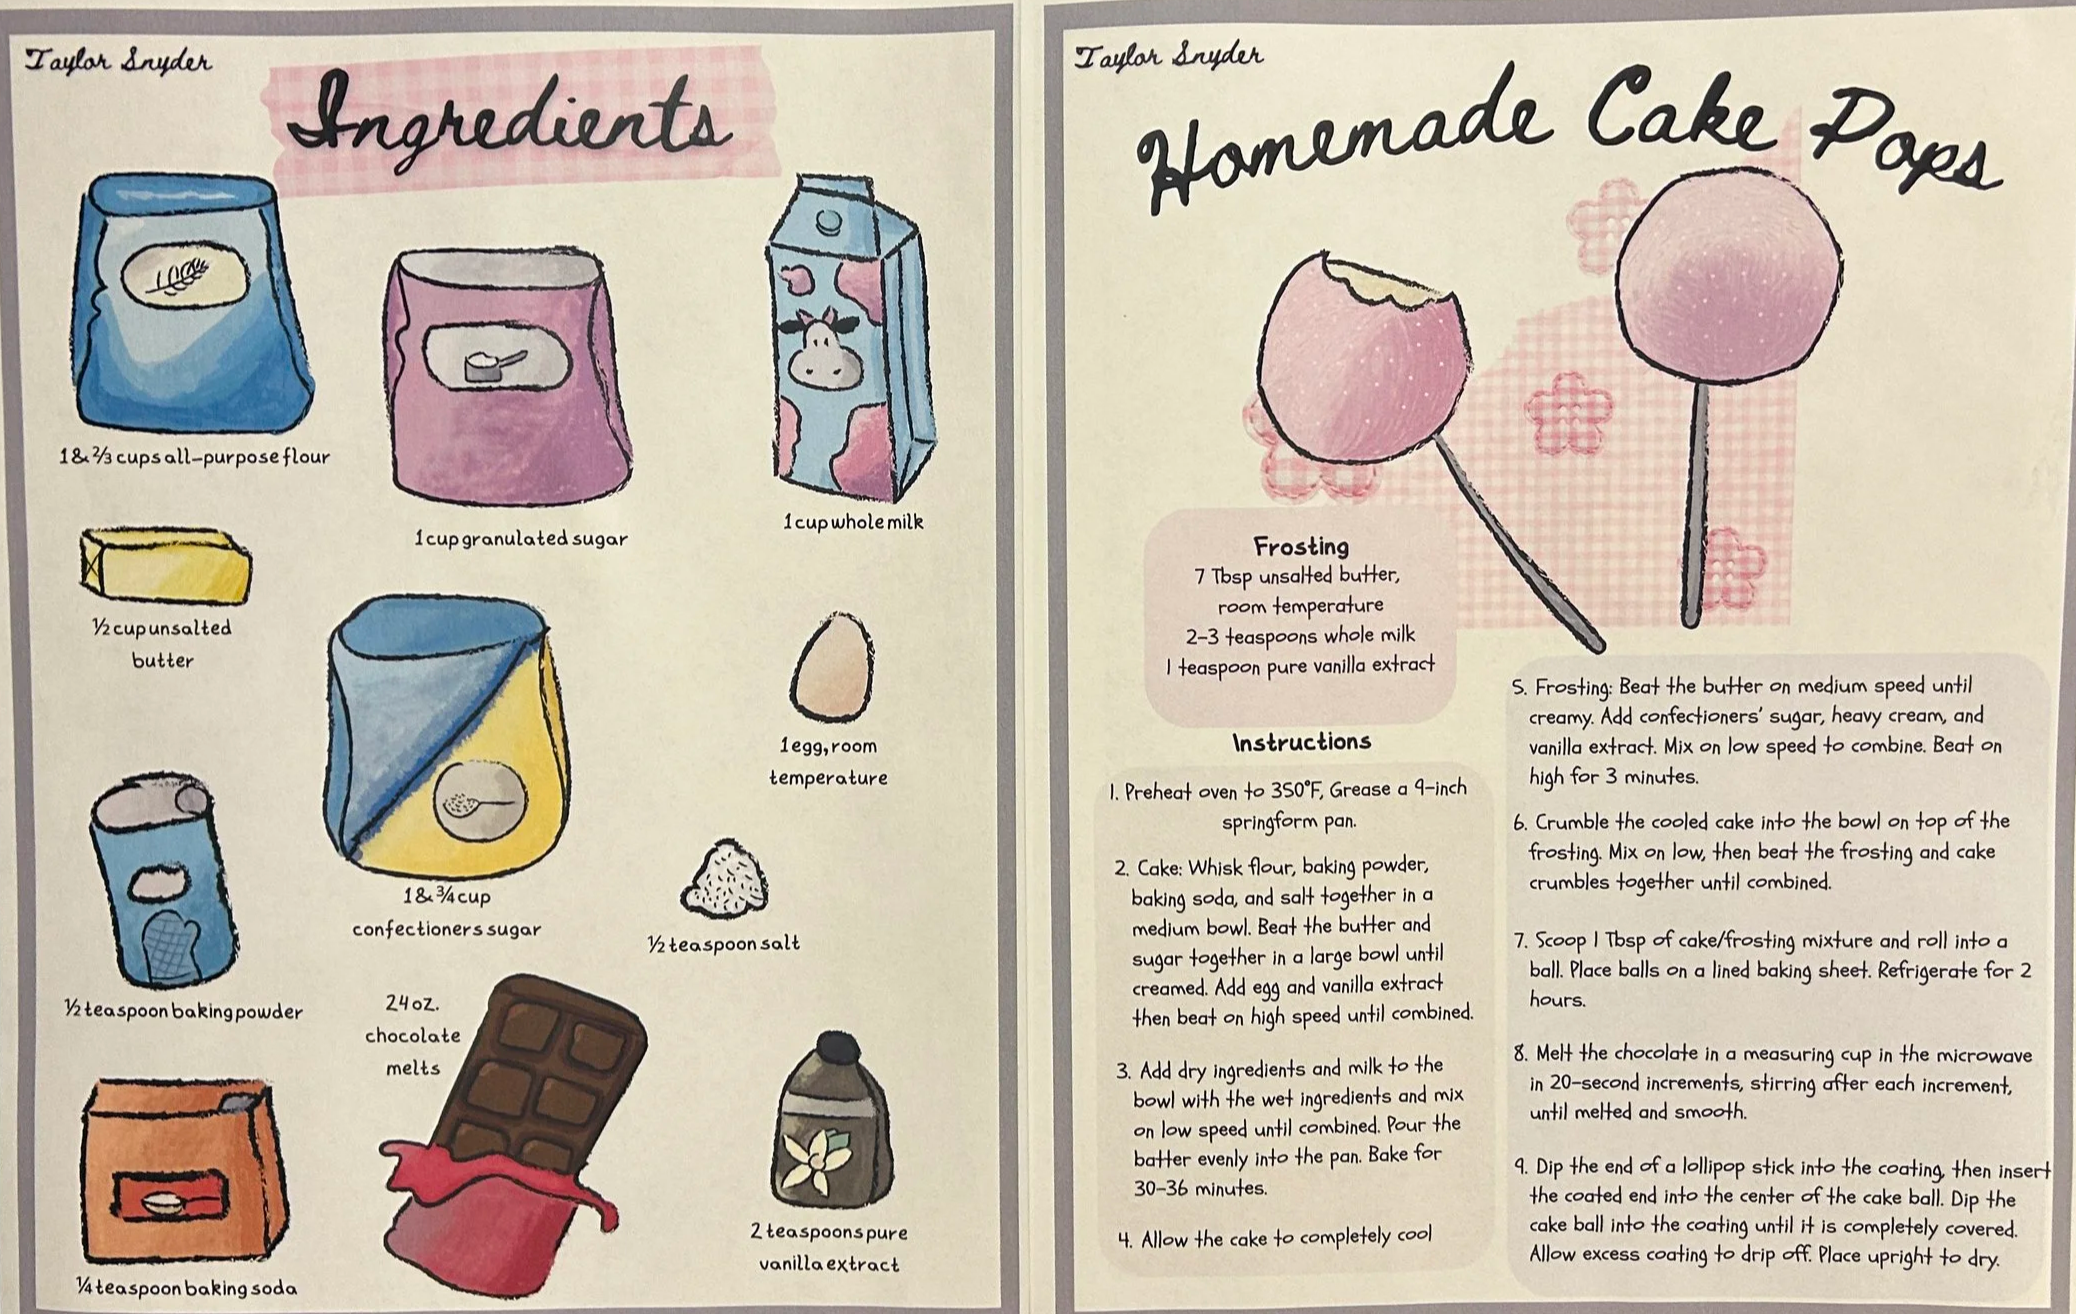 Taylor Snyder
Ingredients
1 & ⅔ cups all-purpose flour
1 cup granulated sugar
1 cup whole milk
½ cup unsalted
butter
1 & ¾ cup
confectioners sugar
1 egg, room
temperature
½ teaspoon baking powder
½ teaspoon salt
24 oz.
chocolate
melts
¼ teaspoon baking soda
2 teaspoons pure
vanilla extract
Taylor Snyder
Homemade Cake Pops
Frosting
7 Tbsp unsalted butter,
room temperature
2-3 teaspoons whole milk
1 teaspoon pure vanilla extract
Instructions
1. Preheat oven to 350°F, Grease a 9-inch
springform pan.
2. Cake: Whisk flour, baking powder,
baking soda, and salt together in a
medium bowl. Beat the butter and
sugar together in a large bowl until
creamed. Add egg and vanilla extract
then beat on high speed until combined.
3. Add dry ingredients and milk to the
bowl with the wet ingredients and mix
on low speed until combined. Pour the
batter evenly into the pan. Bake for
30-36 minutes.
4. Allow the cake to completely cool
5. Frosting: Beat the butter on medium speed until
creamy. Add confectioners' sugar, heavy cream, and
vanilla extract. Mix on low speed to combine. Beat on
high for 3 minutes.
6. Crumble the cooled cake into the bowl on top of the
frosting. Mix on low, then beat the frosting and cake
crumbles together until combined.
7. Scoop 1 Tbsp of cake/frosting mixture and roll into a
ball. Place balls on a lined baking sheet. Refrigerate for 2
hours.
8. Melt the chocolate in a measuring cup in the microwave
in 20-second increments, stirring after each increment,
until melted and smooth.
9. Dip the end of a lollipop stick into the coating, then insert
the coated end into the center of the cake ball. Dip the
cake ball into the coating until it is completely covered.
Allow excess coating to drip off. Place upright to dry.